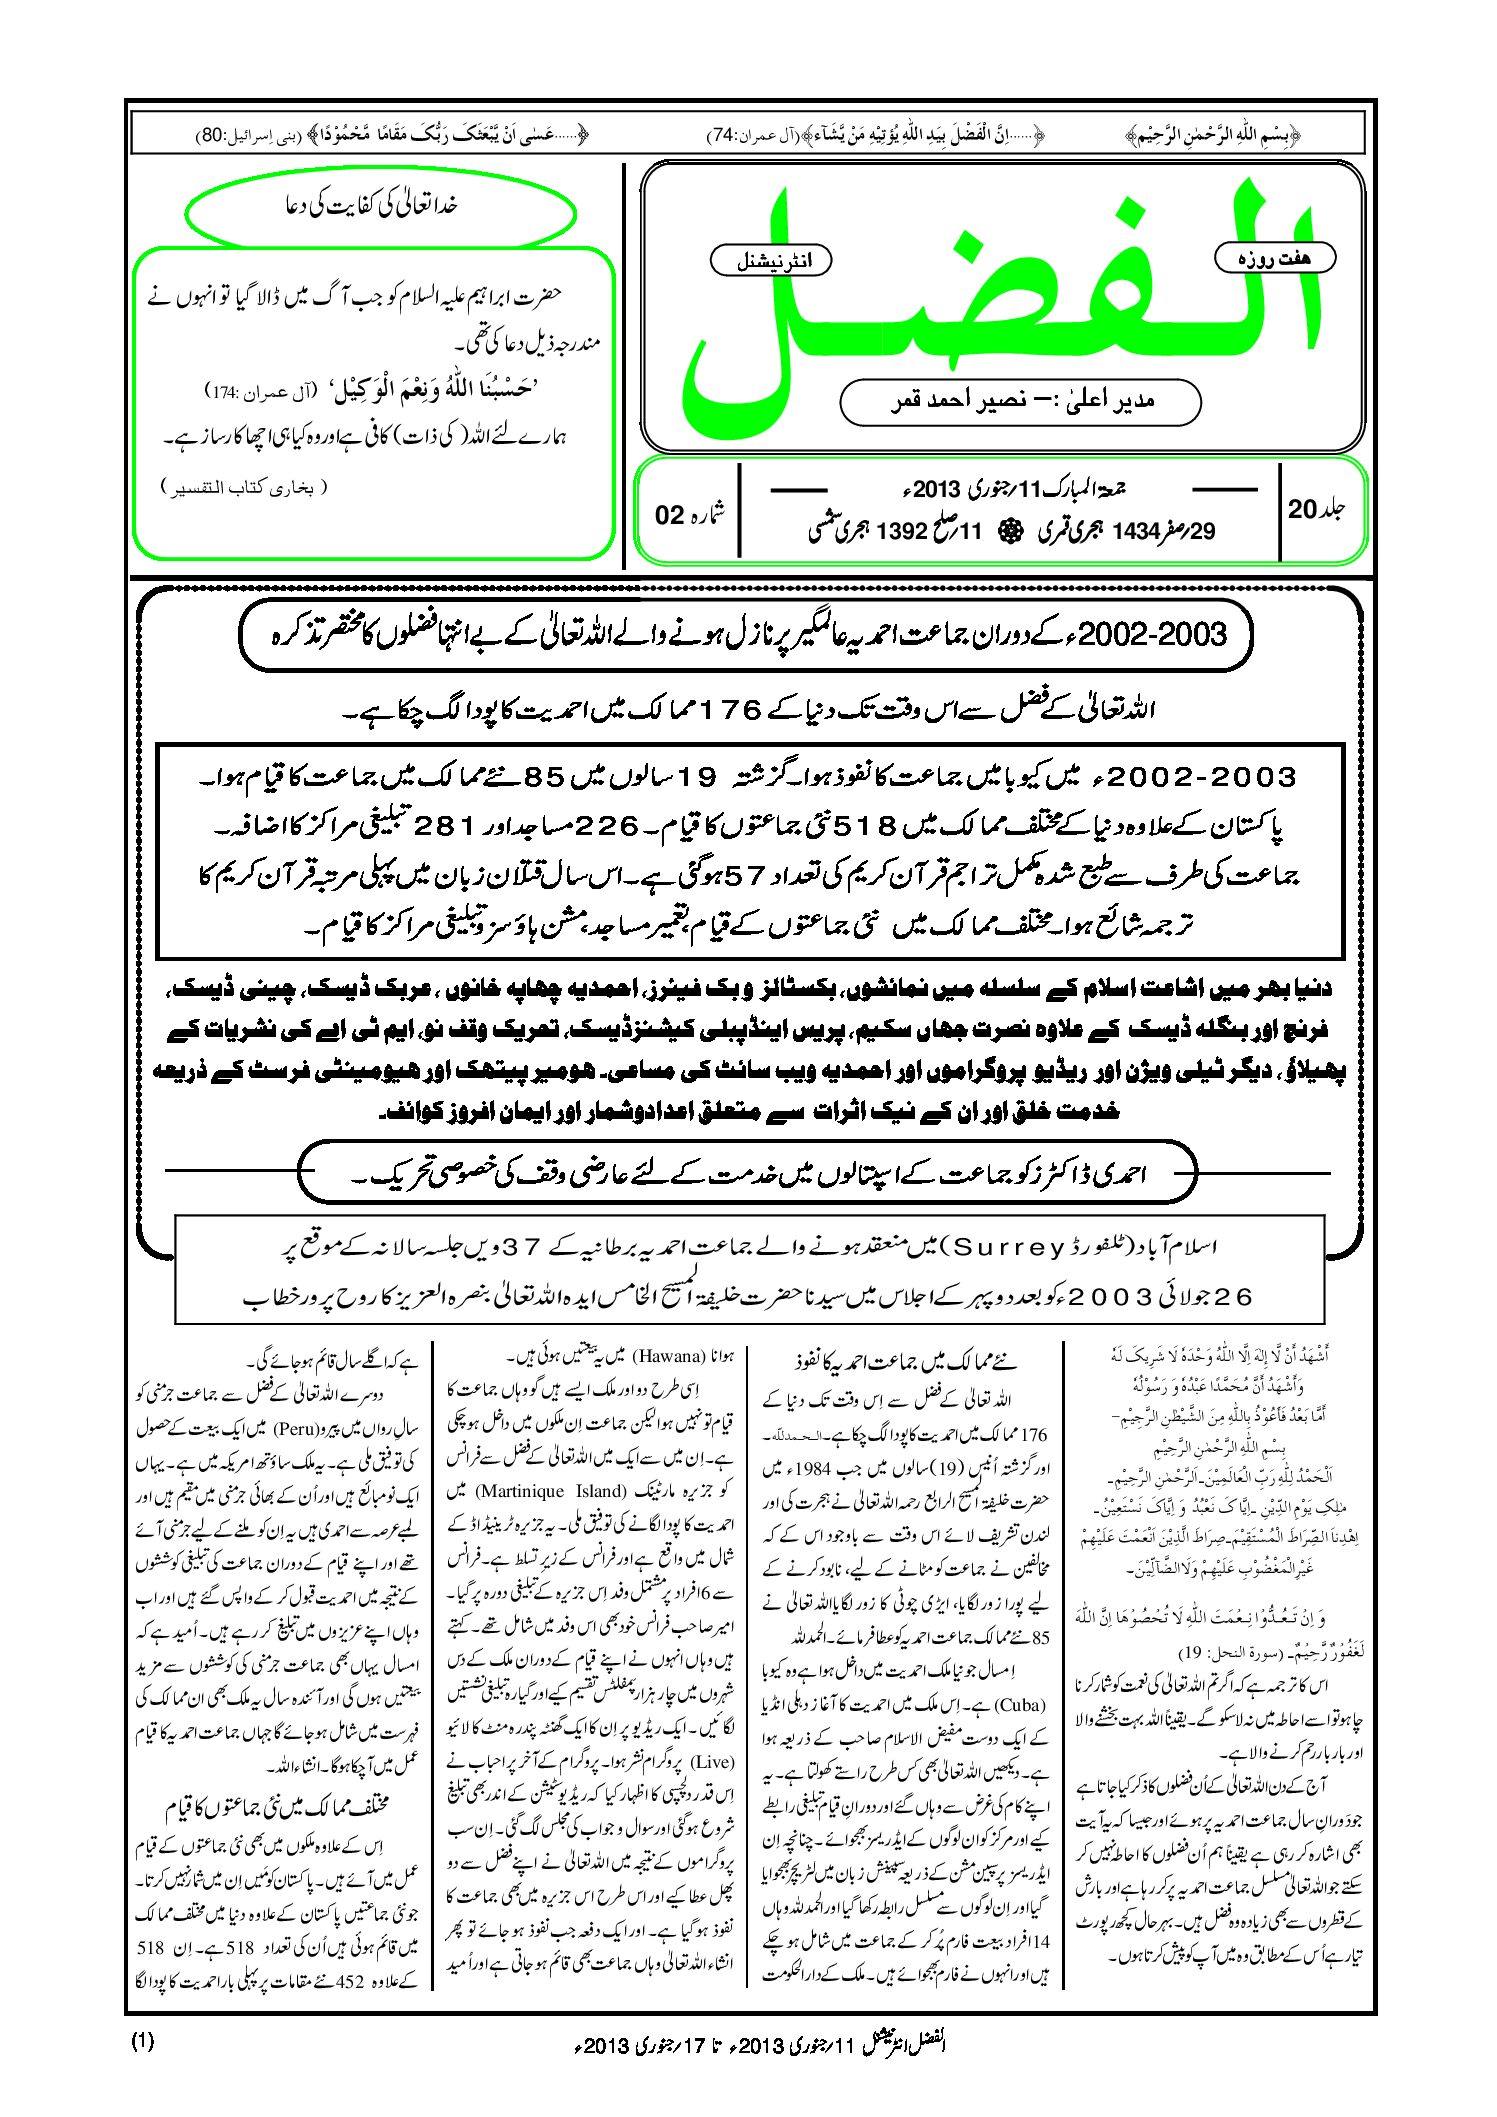 ﴿بِسْمِ اللّٰهِ الرَّحْمٰنِ الرَّحِيْمِ﴾
﴿......اِنَّ الْفَضْلَ بِيَدِ اللّٰهِ يُؤْتِيْهِ مَنْ يَّشَآء﴾(آل عمران:74)
﴿......عَسٰى اَنْ يَّبْعَثَکَ رَبُّکَ مَقَامًا مَّحْمُوْدًا﴾ (بنی اِسرائیل:80)
الفضل
ہفت روزہ
انٹرنیشنل
مدیر اعلیٰ :– نصیر احمد قمر
جلد 20
جمعۃ المبارک 11؍جنوری 2013ء
29؍صفر 1434 ہجری قمری 11؍صلح 1392 ہجری شمسی
شمارہ 02
خدا تعالیٰ کی کفایت کی دعا
حضرت ابراہیم علیہ السلام کو جب آگ میں ڈالا گیا تو انہوں نے
مندرجہ ذیل دعا کی تھی۔
’حَسْبُنَا اللّٰهُ وَنِعْمَ الْوَكِيْل‘ (آل عمران :174)
ہمارے لئے اللہ( کی ذات) کافی ہے اور وہ کیا ہی اچھا کارساز ہے۔
( بخاری کتاب التفسیر )
2002-2003ء کے دوران جماعت احمدیہ عالمگیر پر نازل ہونے والے اللہ تعالیٰ کے بے انتہا فضلوں کا مختصر تذکرہ
اللہ تعالیٰ کے فضل سے اس وقت تک دنیا کے 176 ممالک میں احمدیت کا پودا لگ چکا ہے۔
2002-2003ء میں کیوبا میں جماعت کا نفوذ ہوا۔ گزشتہ 19 سالوں میں 85 نئے ممالک میں جماعت کا قیام ہوا۔
پاکستان کے علاوہ دنیا کے مختلف ممالک میں 518 نئی جماعتوں کا قیام۔ 226 مساجد اور 281 تبلیغی مراکز کا اضافہ۔
جماعت کی طرف سے طبع شدہ مکمل تراجم قرآن کریم کی تعداد 57 ہوگئی ہے۔ اس سال قتلان زبان میں پہلی مرتبہ قرآن کریم کا
ترجمہ شائع ہوا۔ مختلف ممالک میں نئی جماعتوں کے قیام، تعمیر مساجد، مشن ہاؤسز و تبلیغی مراکز کا قیام۔
دنیا بھر میں اشاعت اسلام کے سلسلہ میں نمائشوں، بکسٹالز و بک فیئرز، احمدیہ چھاپہ خانوں ، عربک ڈیسک، چینی ڈیسک،
فرنچ اور بنگلہ ڈیسک کے علاوہ نصرت جہاں سکیم، پریس اینڈ پبلی کیشنز ڈیسک، تحریک وقف نو، ایم ٹی اے کی نشریات کے
پھیلاؤ، دیگر ٹیلی ویژن اور ریڈیو پروگراموں اور احمدیہ ویب سائٹ کی مساعی۔ ہومیو پیتھک اور ہیومینٹی فرسٹ کے ذریعہ
خدمت خلق اور ان کے نیک اثرات سے متعلق اعداد و شمار اور ایمان افروز کوائف۔
احمدی ڈاکٹرز کو جماعت کے اسپتالوں میں خدمت کے لئے عارضی وقف کی خصوصی تحریک۔
اسلام آباد (ٹلفورڈ Surrey) میں منعقد ہونے والے جماعت احمدیہ برطانیہ کے 37ویں جلسہ سالانہ کے موقع پر
26 جولائی 2003ء کو بعد دوپہر کے اجلاس میں سیدنا حضرت خلیفۃ المسیح الخامس ایدہ اللہ تعالیٰ بنصرہ العزیز کا روح پرور خطاب
أَشْهَدُ أَنْ لَّا إِلٰهَ إِلَّا اللّٰهُ وَحْدَهٗ لَا شَرِيکَ لَهٗ
وَأَشْهَدُ أَنَّ مُحَمَّدًا عَبْدُهٗ وَ رَسُوْلُهٗ
أَمَّا بَعْدُ فَأَعُوْذُ بِاللّٰهِ مِنَ الشَّيْطٰنِ الرَّجِيْمِ-
بِسْمِ اللّٰهِ الرَّحْمٰنِ الرَّحِيْمِ
اَلْحَمْدُ لِلّٰهِ رَبِّ الْعَالَمِيْنَ۔اَلرَّحْمٰنِ الرَّحِيْمِ۔
مٰلِکِ يَوْمِ الدِّيْنِ ۔اِيَّاکَ نَعْبُدُ وَ اِيَّاکَ نَسْتَعِيْنُ۔
اِهْدِنَا الصِّرَاطَ الْمُسْتَقِيْمَ۔صِرَاطَ الَّذِيْنَ اَنْعَمْتَ عَلَيْهِمْ
غَيْرِالْمَغْضُوْبِ عَلَيْهِمْ وَلَاالضَّآلِّيْنَ۔
وَ اِنْ تَعُدُّوْا نِعْمَتَ اللّٰهِ لَا تُحْصُوْهَا اِنَّ اللّٰهَ
لَغَفُوْرٌ رَّحِيْمٌ۔ (سورۃ النحل: 19)
اس کا ترجمہ ہے کہ اگر تم اللہ تعالیٰ کی نعمت کو شمار کرنا
چاہو تو اسے احاطہ میں نہ لا سکو گے۔ یقیناً اللہ بہت بخشنے والا
اور بار بار رحم کرنے والا ہے۔
آج کے دن اللہ تعالیٰ کے اُن فضلوں کا ذکر کیا جاتا ہے
جو دَورانِ سال جماعت احمدیہ پر ہوئے اور جیسا کہ یہ آیت
بھی اشارہ کر رہی ہے یقیناً ہم اُن فضلوں کا احاطہ نہیں کر
سکتے جو اللہ تعالیٰ مسلسل جماعت احمدیہ پر کر رہا ہے اور بارش
کے قطروں سے بھی زیادہ وہ فضل ہیں۔ بہرحال کچھ رپورٹ
تیار ہے اُس کے مطابق وہ میں آپ کو پیش کرتا ہوں۔
نئے ممالک میں جماعت احمدیہ کا نفوذ
اللہ تعالیٰ کے فضل سے اِس وقت تک دنیا کے
176 ممالک میں احمدیت کا پودا لگ چکا ہے۔ الحمدللہ۔
اور گزشتہ اُنیس (19) سالوں میں جب 1984ء میں
حضرت خلیفۃ المسیح الرابع رحمہ اللہ تعالیٰ نے ہجرت کی اور
لندن تشریف لائے اس وقت سے باوجود اس کے کہ
مخالفین نے جماعت کو مٹانے کے لیے، نابود کرنے کے
لیے پورا زور لگایا، ایڑی چوٹی کا زور لگایا اللہ تعالیٰ نے
85 نئے ممالک جماعت احمدیہ کو عطا فرمائے۔ الحمد للہ
اِمسال جو نیا ملک احمدیت میں داخل ہوا ہے وہ کیوبا
(Cuba) ہے۔ اِس ملک میں احمدیت کا آغاز دہلی انڈیا
کے ایک دوست مفیض الاسلام صاحب کے ذریعہ ہوا
ہے۔ دیکھیں اللہ تعالیٰ بھی کس طرح راستے کھولتا ہے۔ یہ
اپنے کام کی غرض سے وہاں گئے اور دورانِ قیام تبلیغی رابطے
کیے اور مرکز کو ان لوگوں کے ایڈریسز بھجوائے۔ چنانچہ اِن
ایڈریسز پر سپین مشن کے ذریعہ سپینش زبان میں لٹریچر بھجوایا
گیا اور اِن لوگوں سے مسلسل رابطہ رکھا گیا اور الحمد للہ وہاں
14 افراد بیعت فارم پُر کر کے جماعت میں شامل ہو چکے
ہیں اور انہوں نے فارم بھجوائے ہیں۔ ملک کے دارالحکومت
ہوانا (Hawana) میں یہ بیعتیں ہوئی ہیں۔
اِسی طرح دو اور ملک ایسے ہیں گو وہاں جماعت کا
قیام تو نہیں ہوا لیکن جماعت اِن ملکوں میں داخل ہو چکی
ہے۔ اِن میں سے ایک میں اللہ تعالیٰ کے فضل سے فرانس
کو جزیرہ مارٹینک (Martinique Island) میں
احمدیت کا پودا لگانے کی توفیق ملی۔ یہ جزیرہ ٹرینیڈاڈ کے
شمال میں واقع ہے اور فرانس کے زیرِ تسلط ہے۔ فرانس
سے 6 افراد پر مشتمل وفد اِس جزیرہ کے تبلیغی دورہ پر گیا۔
امیر صاحب فرانس خود بھی اس وفد میں شامل تھے۔ کہتے
ہیں وہاں انہوں نے اپنے قیام کے دوران ملک کے دس
شہروں میں چار ہزار پمفلٹس تقسیم کیے اور گیارہ تبلیغی نشستیں
لگائیں۔ ایک ریڈیو پر اِن کا ایک گھنٹہ پندرہ منٹ کا لائیو
(Live) پروگرام نشر ہوا۔ پروگرام کے آخر پر احباب نے
اِس قدر دلچسپی کا اظہار کیا کہ ریڈیو سٹیشن کے اندر بھی تبلیغ
شروع ہو گئی اور سوال و جواب کی مجلس لگ گئی۔ اِن سب
پروگراموں کے نتیجہ میں اللہ تعالیٰ نے اپنے فضل سے دو
پھل عطا کیے اور اس طرح اس جزیرہ میں بھی جماعت کا
نفوذ ہو گیا ہے۔ اور ایک دفعہ جب نفوذ ہو جائے تو پھر
انشاء اللہ تعالیٰ وہاں جماعت بھی قائم ہو جاتی ہے اور اُمید
ہے کہ اگلے سال قائم ہو جائے گی۔
دوسرے اللہ تعالیٰ کے فضل سے جماعت جرمنی کو
سالِ رواں میں پیرو (Peru) میں ایک بیعت کے حصول
کی توفیق ملی ہے۔ یہ ملک ساؤتھ امریکہ میں ہے۔ یہاں
ایک نومبائع ہیں اور اُن کے بھائی جرمنی میں مقیم ہیں اور
لمبے عرصہ سے احمدی ہیں یہ اِن کو ملنے کے لیے جرمنی آئے
تھے اور اپنے قیام کے دوران جماعت کی تبلیغی کوششوں
کے نتیجہ میں احمدیت قبول کر کے واپس گئے ہیں اور اب
وہاں اپنے عزیزوں میں تبلیغ کر رہے ہیں۔ اُمید ہے کہ
امسال یہاں بھی جماعت جرمنی کی کوششوں سے مزید
بیعتیں ہوں گی اور آئندہ سال یہ ملک بھی ان ممالک کی
فہرست میں شامل ہو جائے گا جہاں جماعت احمدیہ کا قیام
عمل میں آ چکا ہوگا۔ انشاء اللہ۔
مختلف ممالک میں نئی جماعتوں کا قیام
اِس کے علاوہ ملکوں میں بھی نئی جماعتوں کے قیام
عمل میں آئے ہیں۔ پاکستان کو مَیں اِن میں شمار نہیں کرتا۔
جو نئی جماعتیں پاکستان کے علاوہ دنیا میں مختلف ممالک
میں قائم ہوئی ہیں اُن کی تعداد 518 ہے۔ اِن 518
کے علاوہ 452 نئے مقامات پر پہلی بار احمدیت کا پودا لگا
الفضل انٹرنیشنل 11؍جنوری 2013ء تا 17؍جنوری 2013ء
(1)